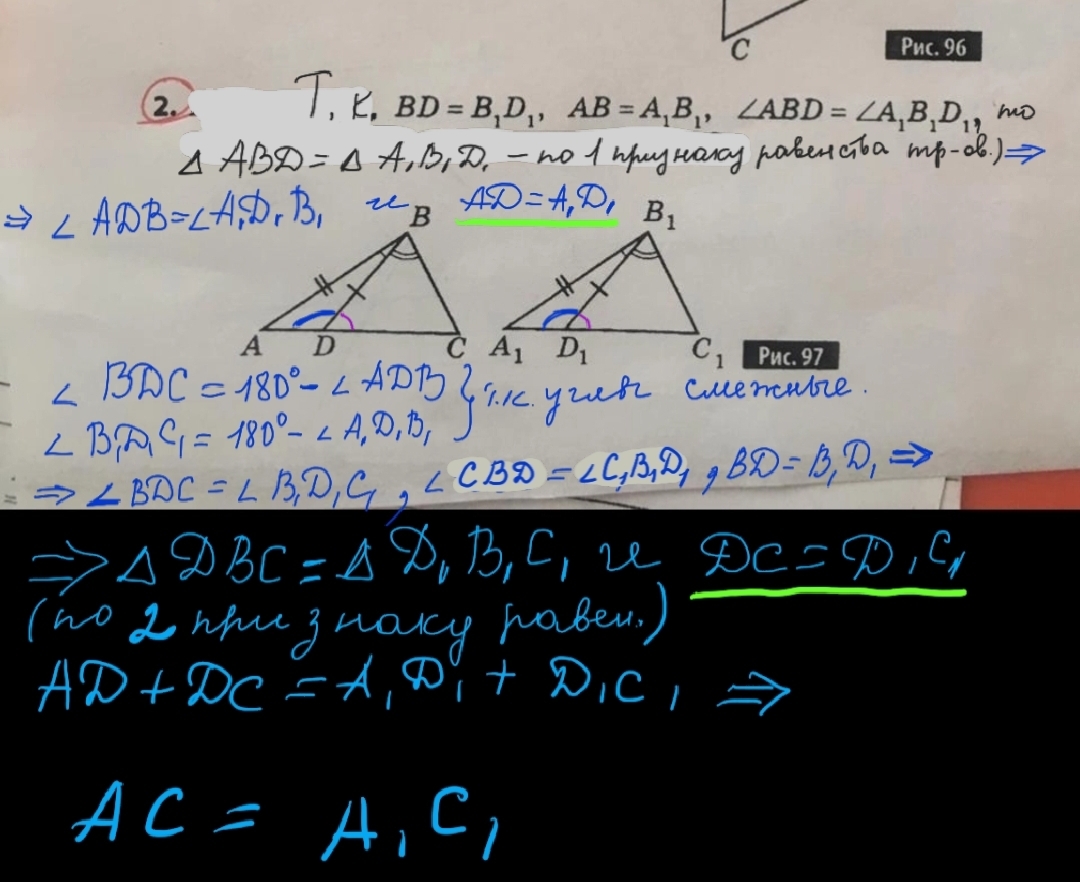 C
Рис. 96
2. Т.к. BD = B₁D₁, AB = A₁B₁, ∠ABD = ∠A₁B₁D₁, то
△ ABD = △ A₁B₁D₁ – по 1 признаку равенства тр-ов.) ⇒
⇒ ∠ ADB = ∠ A₁D₁B₁ и AD = A₁D₁
B B₁
A D C A₁ D₁ C₁ Рис. 97
∠ BDC = 180° – ∠ ADB } т.к. углы смежные.
∠ B₁D₁C₁ = 180° – ∠ A₁D₁B₁
⇒ ∠ BDC = ∠ B₁D₁C₁, ∠ CBD = ∠C₁B₁D₁, BD = B₁D₁ ⇒
⇒ △ DBC = △ D₁B₁C₁ и DC = D₁C₁
(по 2 признаку равен.)
AD + DC = A₁D₁ + D₁C₁ ⇒
AC = A₁C₁